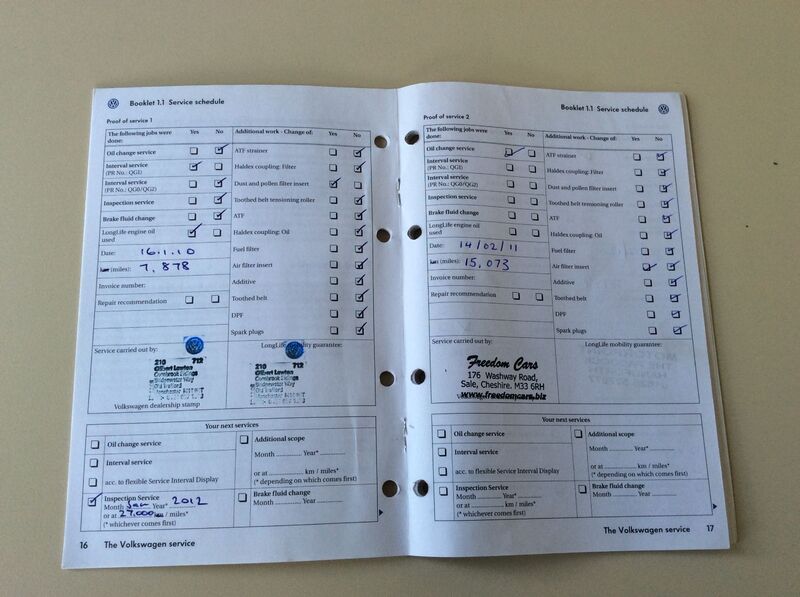 Booklet 1.1 Service schedule
Proof of service 1
The following jobs were done: Yes No
Oil change service
Interval service
(PR No.: QGI)
Interval service
(PR No.: QG0/QG2)
Inspection service
Brake fluid change
LongLife engine oil
used
Date: 16.1.10
km (miles): 7,878
Invoice number:
Repair recommendation
Additional work - Change of: Yes No
ATF strainer
Haldex coupling: Filter
Dust and pollen filter insert
Toothed belt tensioning roller
ATF
Haldex coupling: Oil
Fuel filter
Air filter insert
Additive
Toothed belt
DPF
Spark plugs
Service carried out by:
LongLife mobility guarantee:
210 712
Gilbert Lawton
210 712
Gilbert Lawton
Volkswagen dealership stamp
Your next services
Oil change service
Interval service
acc. to flexible Service Interval Display
Inspection Service
Month Jan Year* 2012
or at 27,000 km / miles*
(* whichever comes first)
Additional scope
Month Year*
or at km / miles*
(* depending on which comes first)
Brake fluid change
Month Year
16 The Volkswagen service
Booklet 1.1 Service schedule
Proof of service 2
The following jobs were
done: Yes No
Oil change service
Interval service
(PR No.: QGI)
Interval service
(PR No.: QG0/QG2)
Inspection service
Brake fluid change
LongLife engine oil
used
Date: 14/02/11
km (miles): 15,073
Invoice number:
Repair recommendation
Additional work - Change of: Yes No
ATF strainer
Haldex coupling: Filter
Dust and pollen filter insert
Toothed belt tensioning roller
ATF
Haldex coupling: Oil
Fuel filter
Air filter insert
Additive
Toothed belt
DPF
Spark plugs
Service carried out by:
LongLife mobility guarantee:
Freedom Cars
176 Washway Road,
Sale, Cheshire. M33 6RH
www.freedomcars.biz
Your next services
Oil change service
Interval service
acc. to flexible Service Interval Display
Inspection Service
Month Year*
or at km / miles*
(* whichever comes first)
Additional scope
Month Year*
or at km / miles*
(* depending on which comes first)
Brake fluid change
Month Year
The Volkswagen service 17